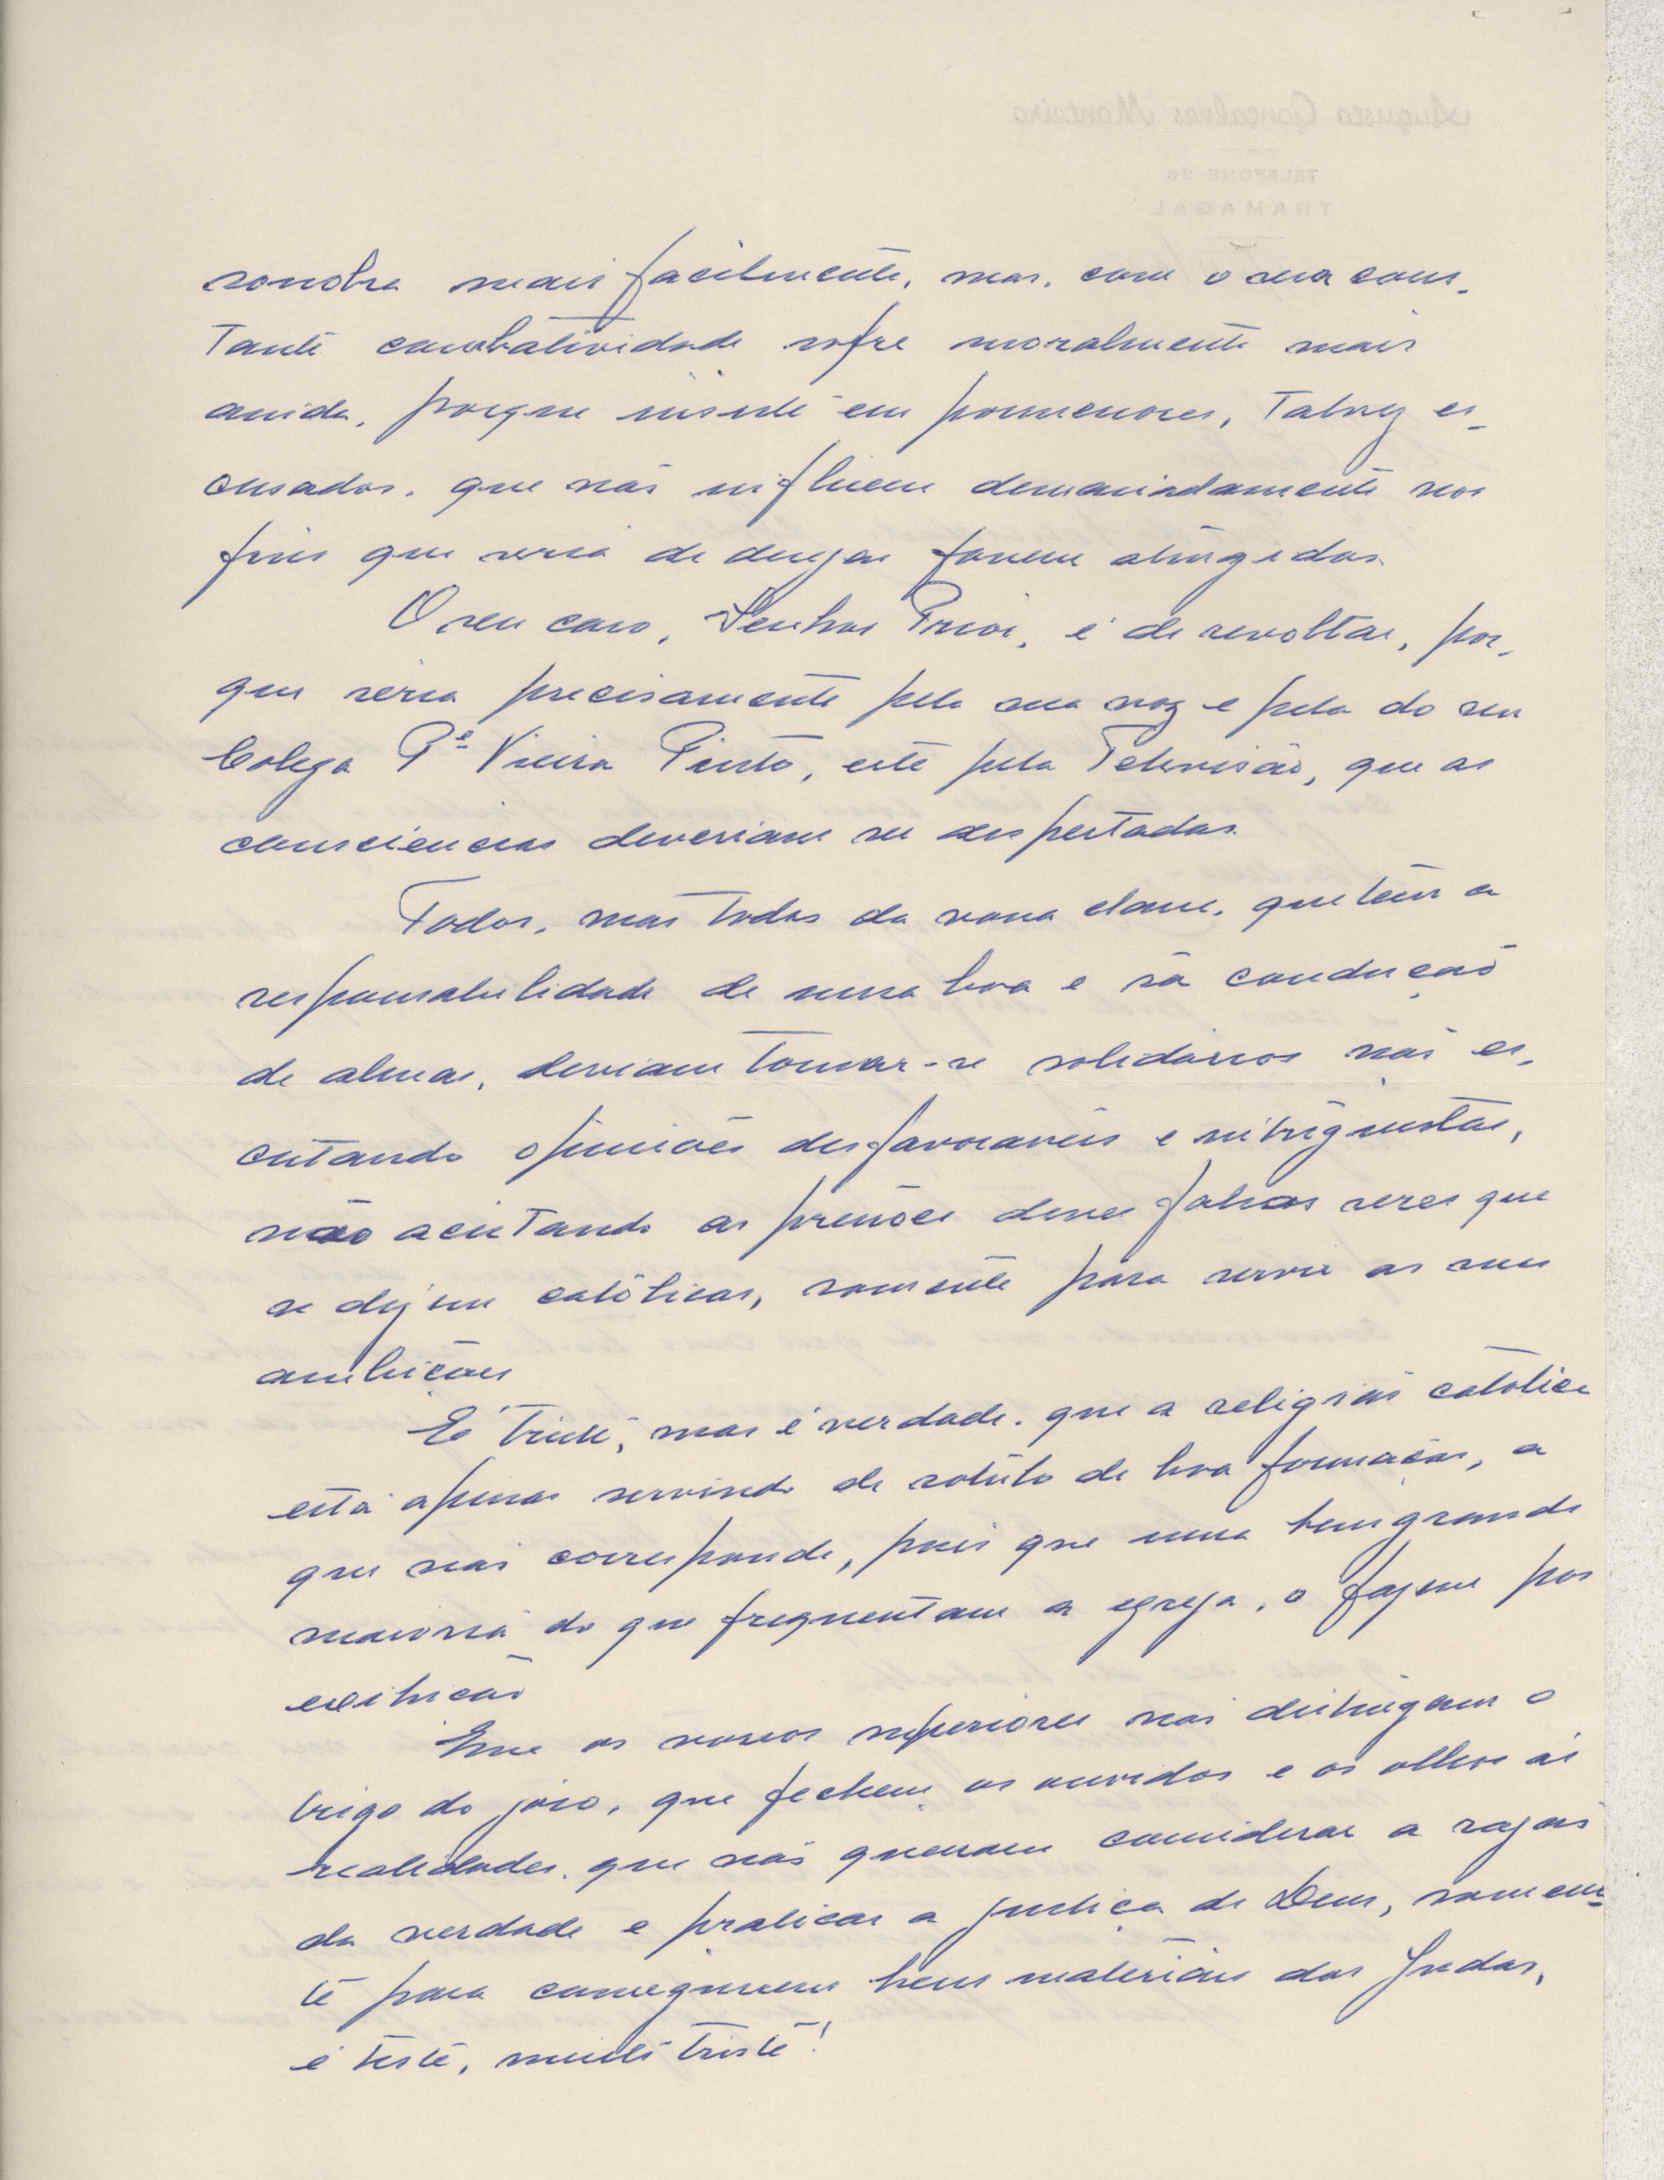 Augusto Gonçalves Monteiro
TELEFONE 36
TRAMAGAL
sossobra mais facilmente, mas, com o sua cons-
tante combatividade sofre moralmente mais
ainda, porque insiste em pormenores, talvez es-
cusados, que não influem demasiadamente nos
fins que seria de desejar fossem atingidos.
O seu caso, Senhor Prior, é de revoltar, por-
que seria precisamente pela sua voz e pela do seu
Colega Pe Vieira Pinto, este pela Televisão, que as
consciencias deveriam ser despertadas.
Todos, mas todos da vossa classe, que têm a
responsabilidade de uma boa e sã condução
de almas, deviam tornar-se solidários não es-
cutando opiniões desfavoraveis e intriguistas,
não aceitando as pressões desses falsos seres que
se dizem católicos, somente para servir as suas
ambições
É triste, mas é verdade, que a religião católica
está apenas servindo de rotulo de boa formação, a
que não corresponde, pois que uma bem grande
maioria do que frequentam a egreja, o fazem por
exibição
Que os vossos superiores não distingam o
trigo do joio, que fechem os ouvidos e os olhos ás
realidades, que não queiram considerar a razão
da verdade e praticar a justiça de Deus, somen-
te para conseguirem bens materiais dos Judas,
é triste, muito triste!